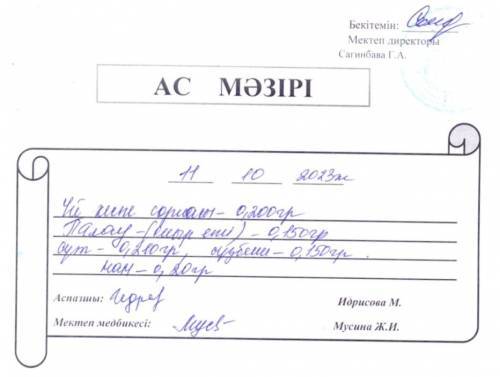 Бекітемін:
Мектеп директоры
Сагинбава Г.А.
АС МӘЗІРІ
11 10 2023ж
Үй кеспе сорпат - 0,200гр
Палау - (сиыр еті) - 0,150гр
сүт - 0,210гр, - 0,150гр.
нан - 0,20гр
Аспазшы: Идрисова М.
Мектеп медбикесі: Мусина Ж.И.